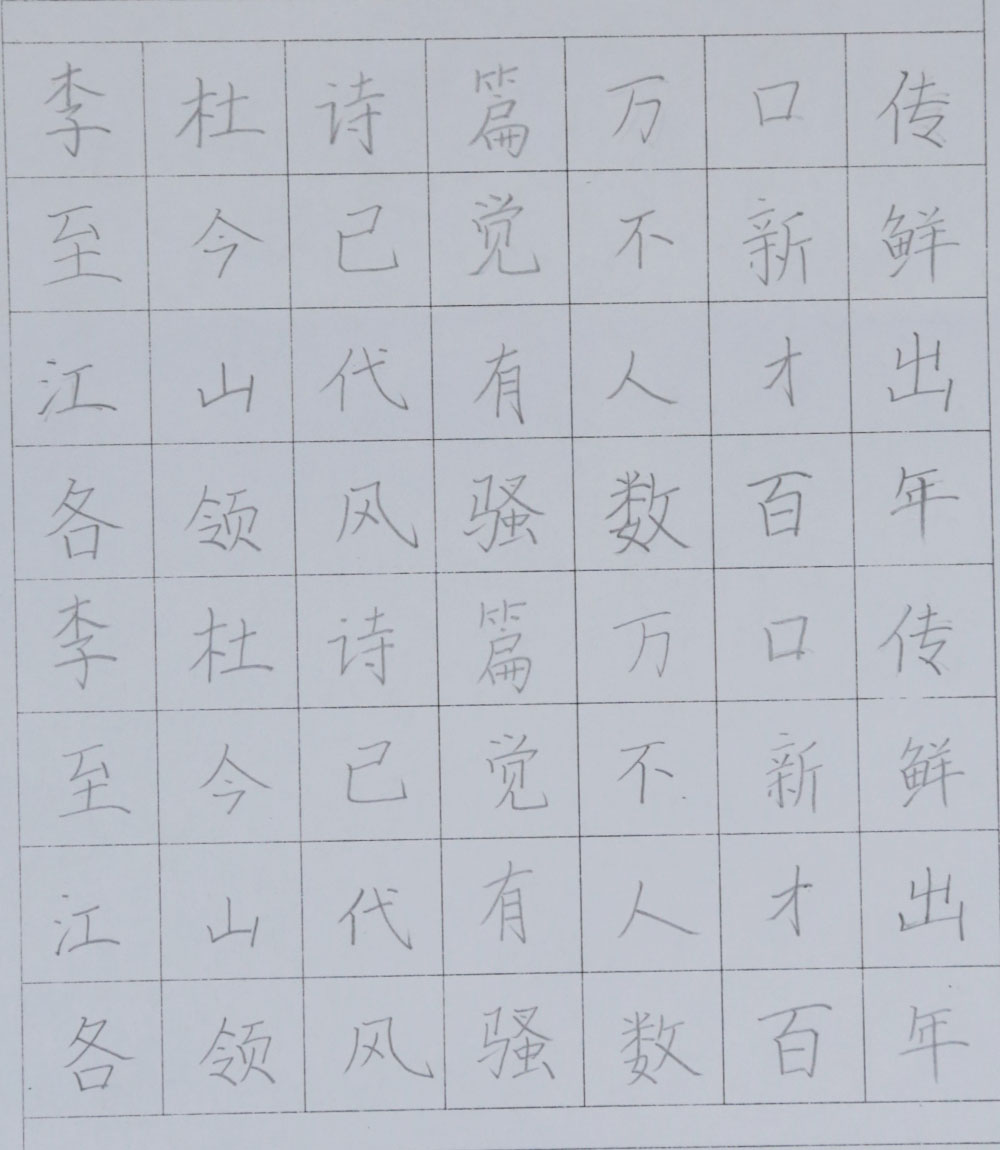 李杜诗篇万口传
至今已觉不新鲜
江山代有人才出
各领风骚数百年
李杜诗篇万口传
至今已觉不新鲜
江山代有人才出
各领风骚数百年